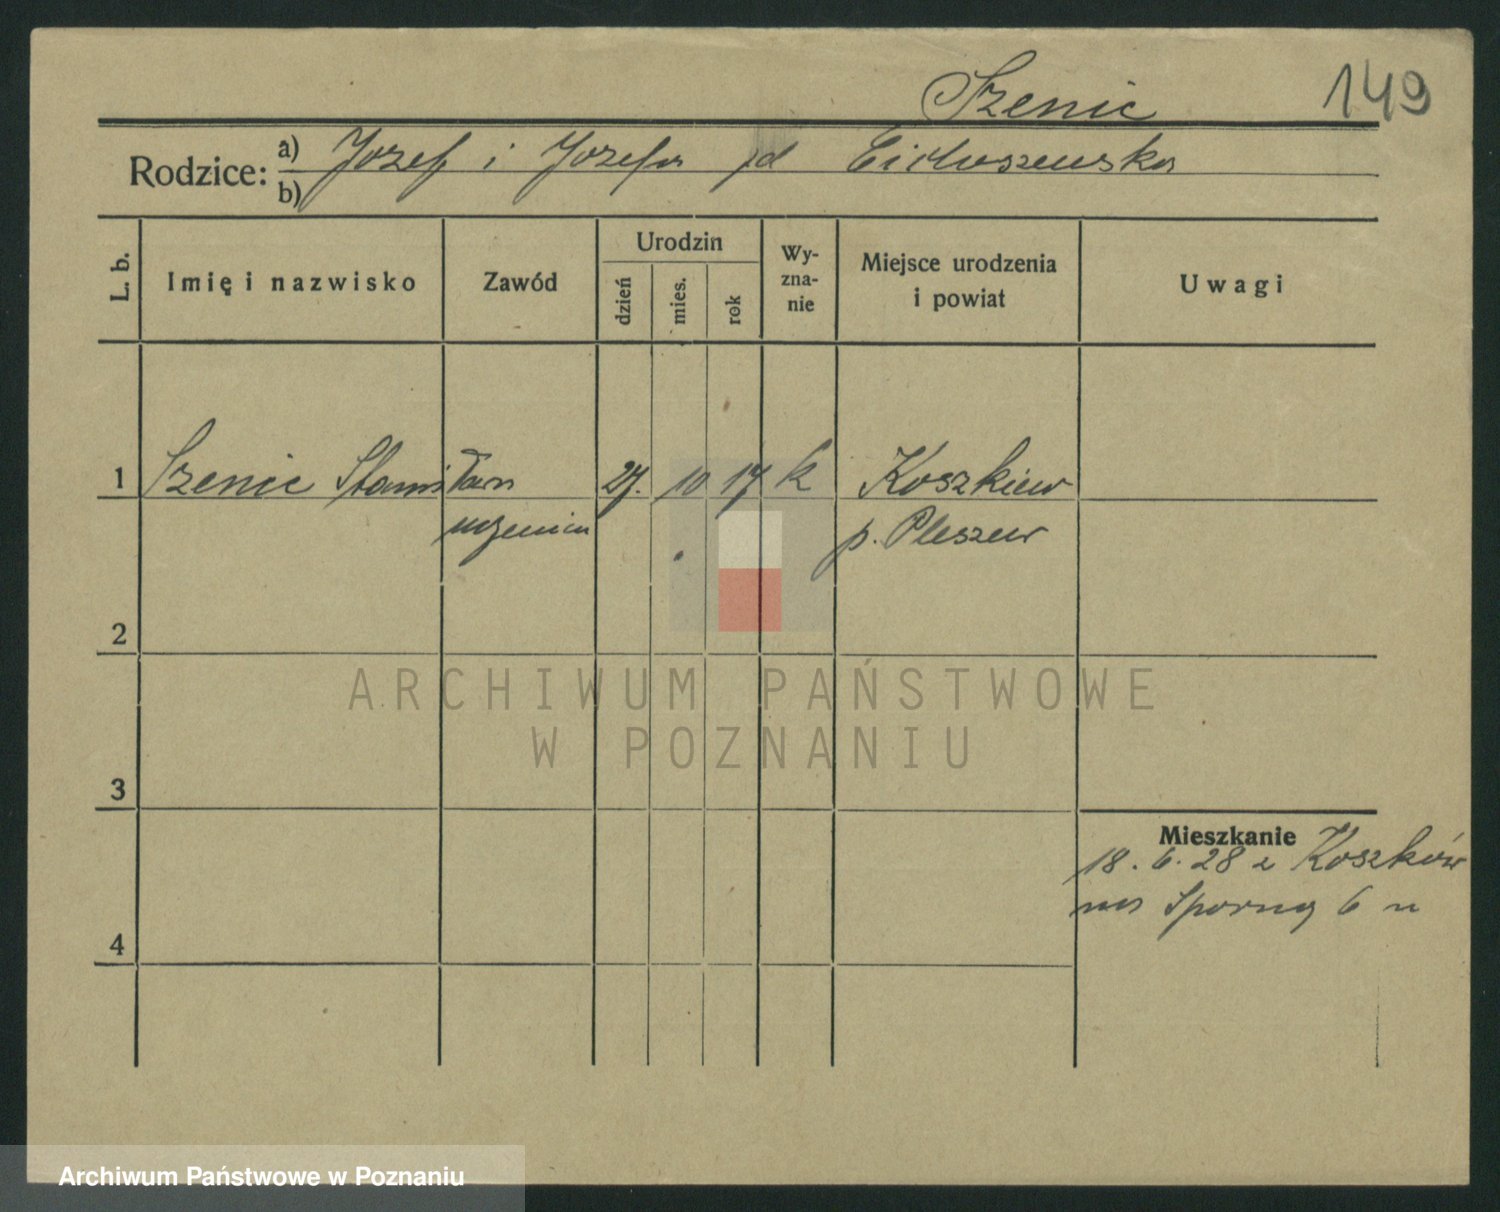 Szenic
149
Rodzice: a) Jozef i Jozefa zd Cichoszewska
b)
L. b.
Imię i nazwisko
Zawód
Urodzin
dzień
mies.
rok
Wy-
zna-
nie
Miejsce urodzenia
i powiat
Uwagi
1 Szenic Stanisław 27. 10 17 k Koszkiew
p. Pleszew
2
ARCHIWUM PAŃSTWOWE
W POZNANIU
3
Mieszkanie
18. 6. 28 z Koszków
na Sporną 6
4
Archiwum Państwowe w Poznaniu